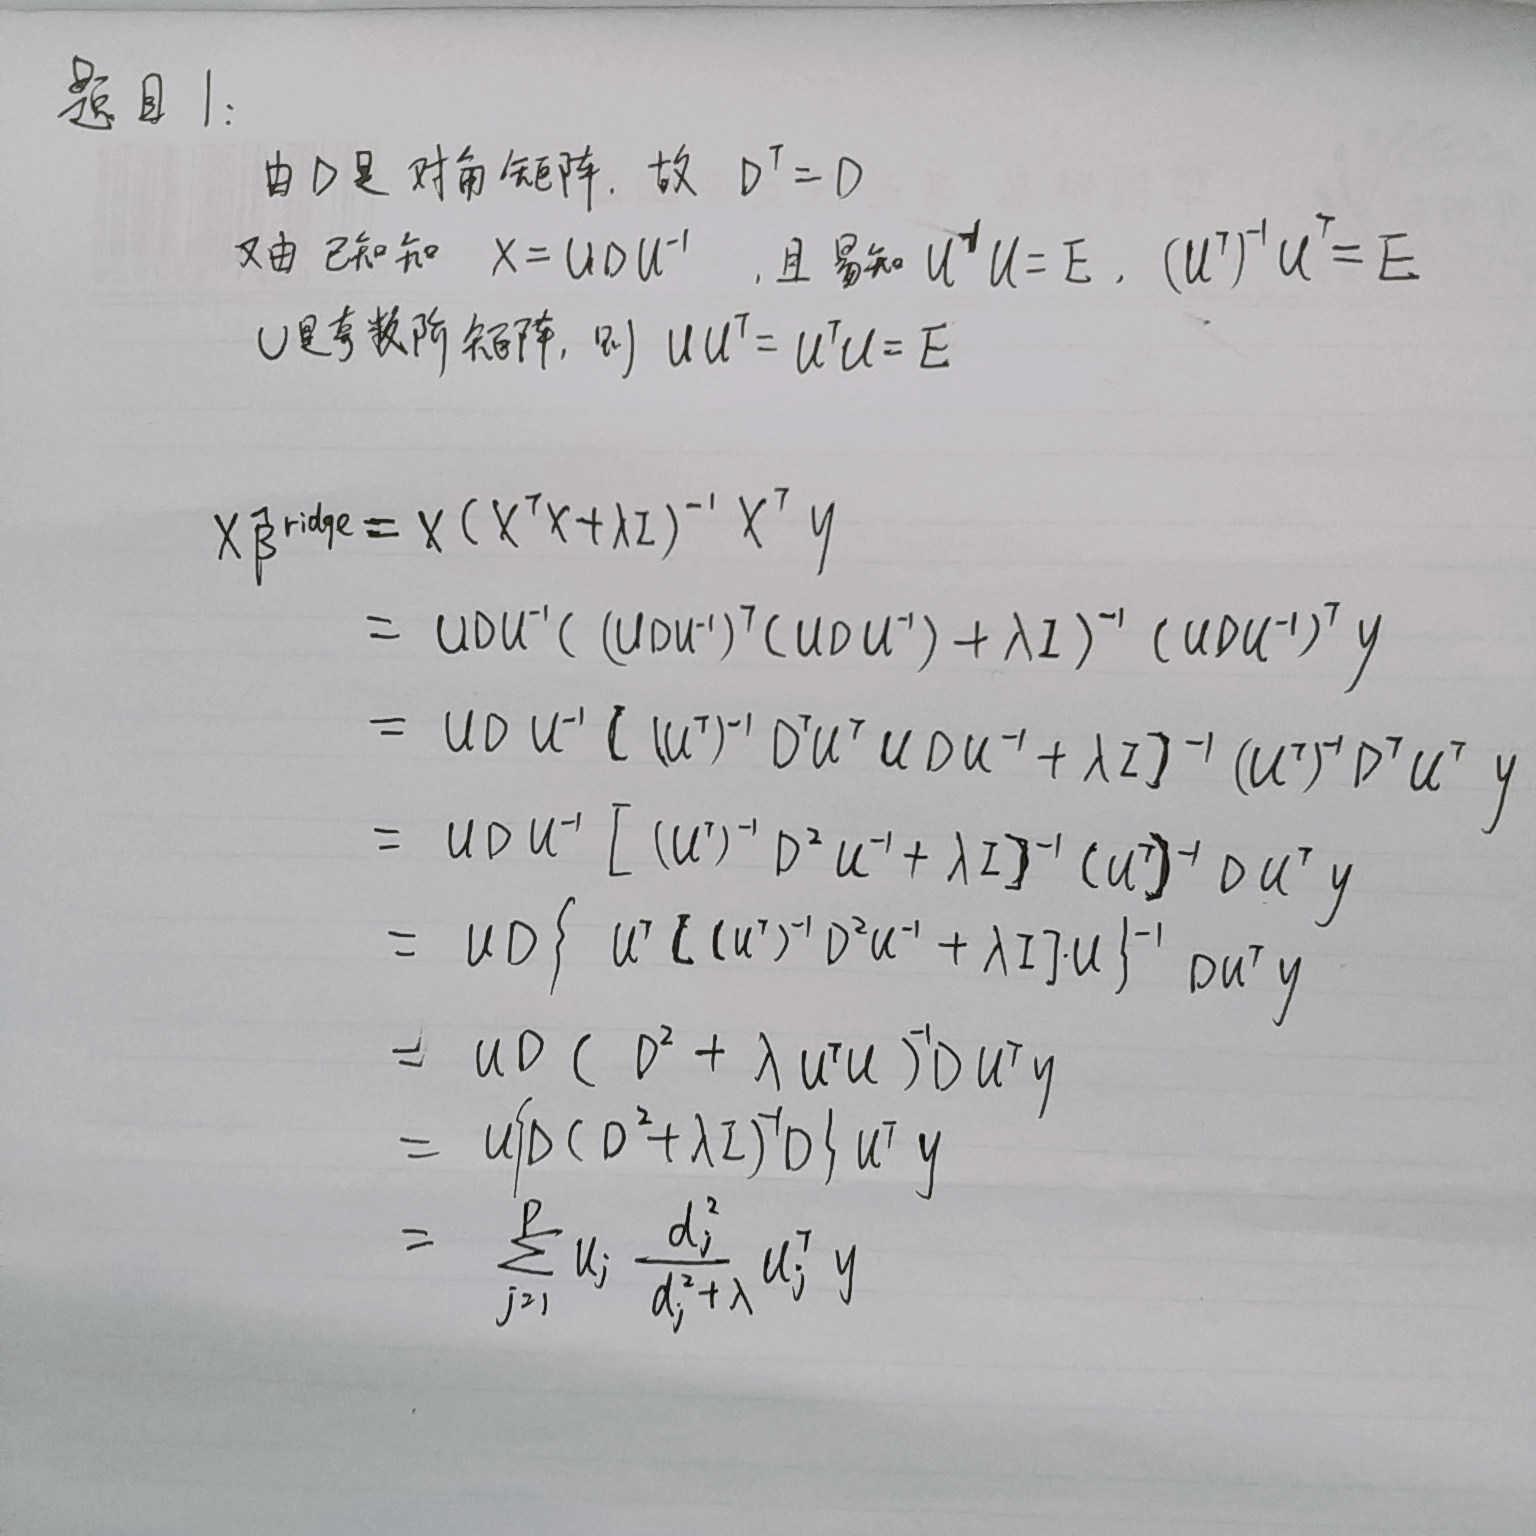 题目1:
由D是对角矩阵. 故 Dᵀ=D
又由已知知 X=UDU⁻¹ ,且易知 U⁻¹U=E, (Uᵀ)⁻¹Uᵀ=E
U是奇数阶矩阵, 则 UUᵀ=UᵀU=E
Xβ̂ʳⁱᵈᵍᵉ = X(XᵀX+λI)⁻¹Xᵀy
= UDU⁻¹((UDU⁻¹)ᵀ(UDU⁻¹)+λI)⁻¹(UDU⁻¹)ᵀy
= UDU⁻¹[(Uᵀ)⁻¹DᵀUᵀUDU⁻¹+λI]⁻¹(Uᵀ)⁻¹DᵀUᵀy
= UDU⁻¹[(Uᵀ)⁻¹D²U⁻¹+λI]⁻¹(Uᵀ)⁻¹DUᵀy
= UD{Uᵀ[(Uᵀ)⁻¹D²U⁻¹+λI]·U}⁻¹DUᵀy
= UD(D²+λUᵀU)⁻¹DUᵀy
= U{D(D²+λI)⁻¹D}Uᵀy
= \sum_{j=1}^{p} u_j \frac{d_j^2}{d_j^2+λ} u_j^T y